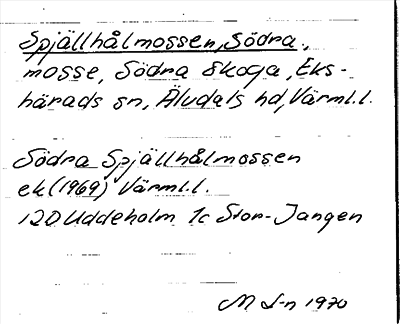 Spjällhålmossen, Södra,
mosse, Södra Skoga, Eks-
härads sn, Älvdals hd, Värml.l.
Södra Spjällhålmossen
ek (1969) Värml.l.
12D Uddeholm 1c Stor-Jangen
M L-n 1970